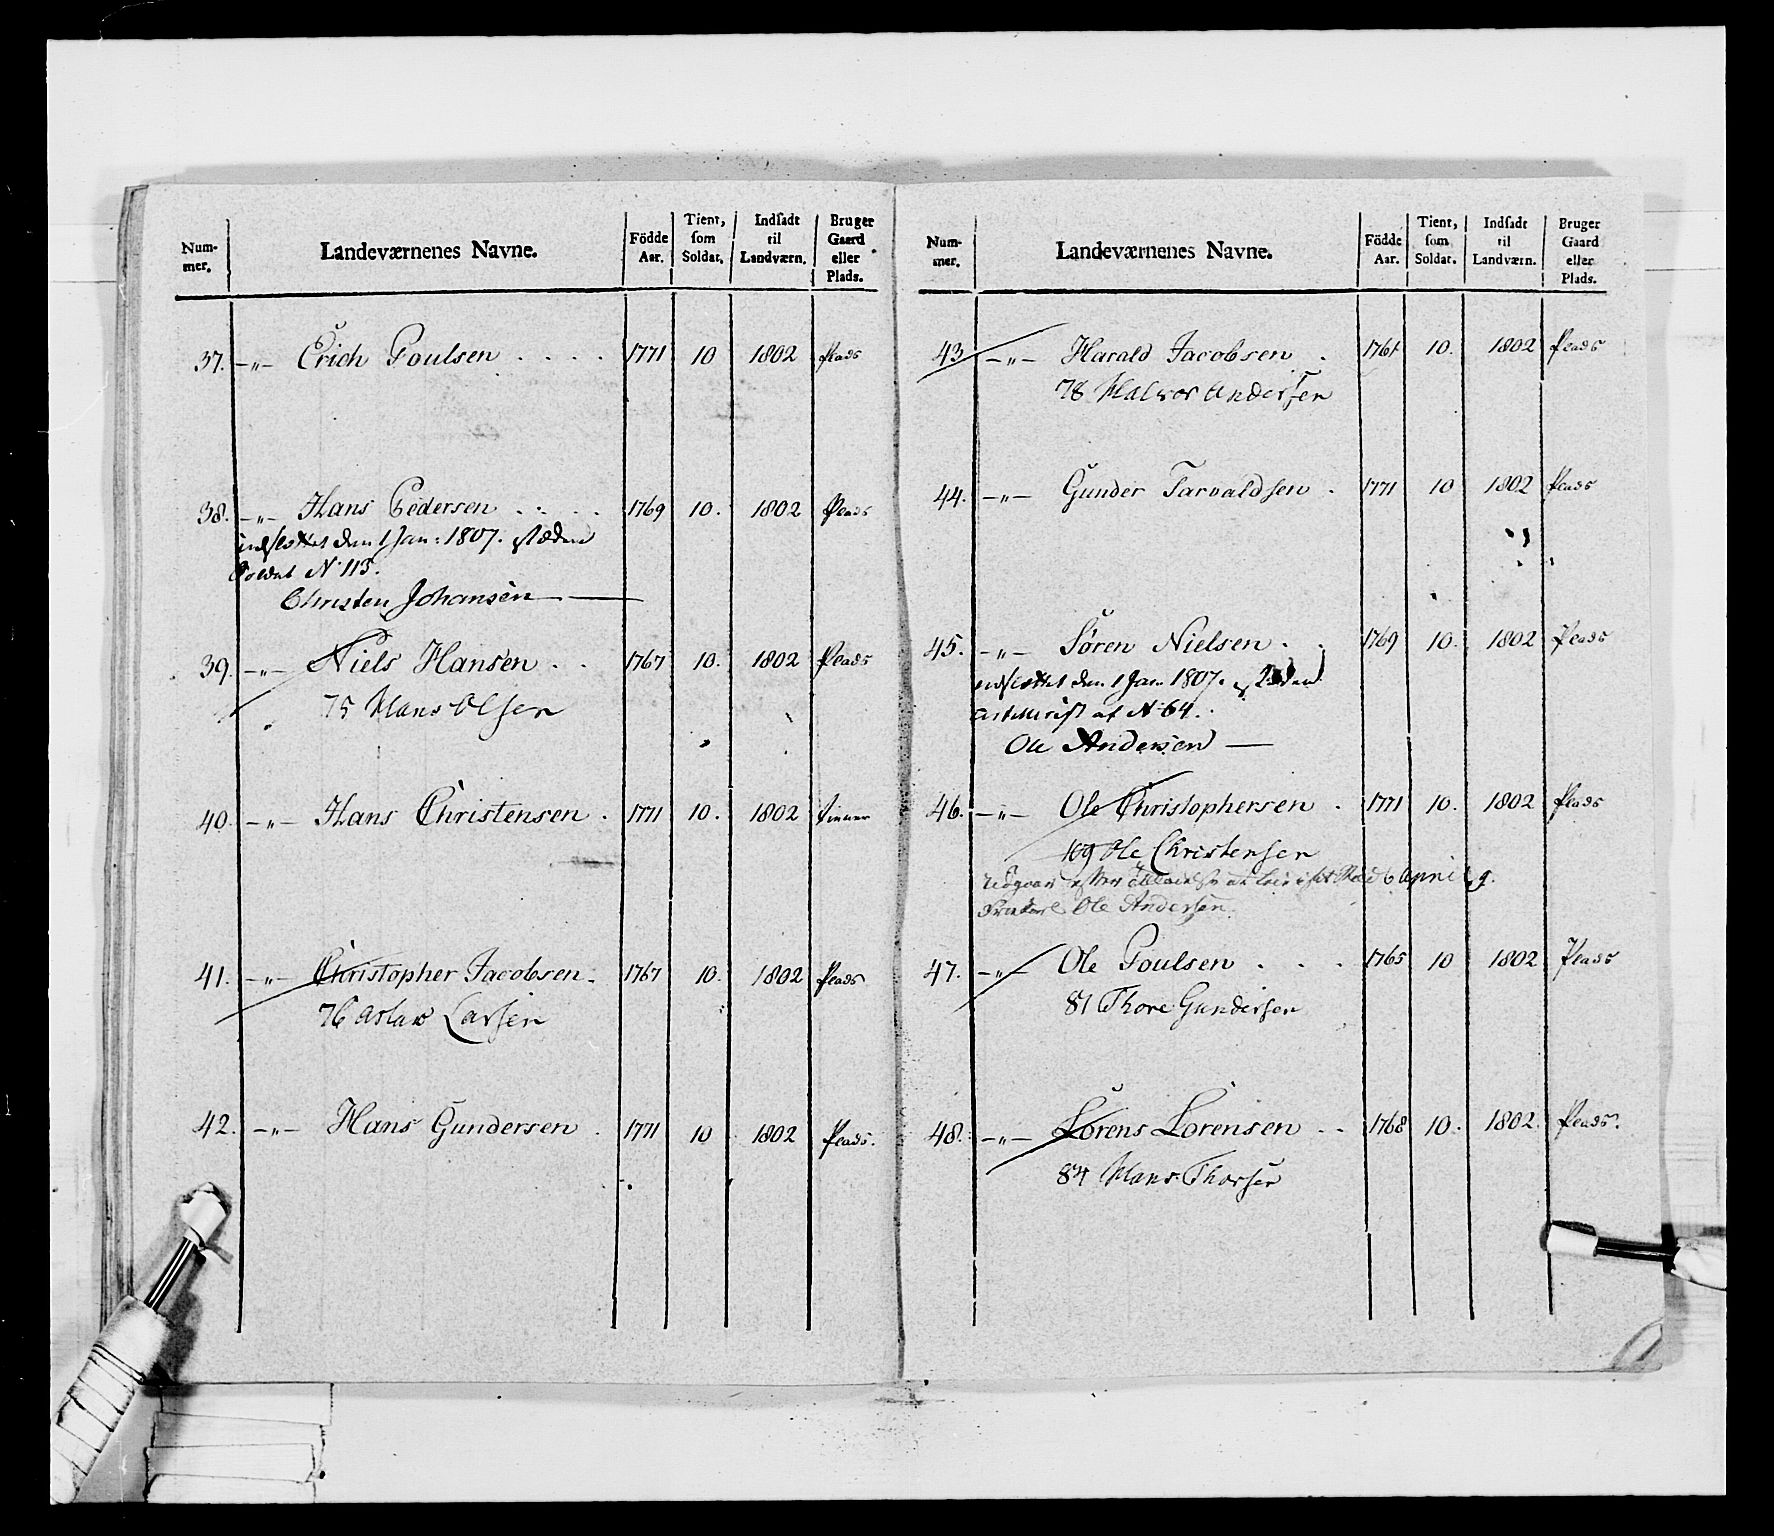 Num-
mer.
Landeværnenes Navne.
Födde
Aar.
Tient,
som
Soldat.
Indsadt
til
Landværn.
Bruger
Gaard
eller
Plads.
37. -"- Erich Poulsen . . . . 1771 10 1802 Plads
38. -"- Hans Pedersen . . . . 1769 10. 1802 Plads
indsættet den 1 Jan: 1807. i stæden
Soldat No 113.
Christen Johansen
39. -"- Niels Hansen . . 1767 10. 1802 Plads
75 Hans Olsen
40. -"- Hans Christensen . 1771 10. 1802
41. -"- Christopher Jacobsen . 1767 10. 1802 Plads
76 Aslak Larsen
42. -"- Hans Gundersen . 1771 10 1802 Plads.
Num-
mer.
Landeværnenes Navne.
Födde
Aar.
Tient,
som
Soldat.
Indsadt
til
Landværn.
Bruger
Gaard
eller
Plads.
43 -"- Harald Jacobsen . 1761 10. 1802 Plads
78 Halvor Andersen
44. -"- Gunder Tarvaldsen . 1771 10 1802 Plads
45. -"- Søren Nielsen . . 1769 10. 1802 Plads
indsættet den 1 Jan. 1807. i stæden
af No 64.
Ole Andersen
46. -"- Ole Christophersen . 1771 10. 1802 Plads
109 Ole Christensen
Udgaar efter April 9.
Ole Andersen.
47. -"- Ole Poulsen . . . 1765 10 1802 Plads
81 Thore Gundersen
48. -"- Lorens Lorensen . . 1768 10. 1802. Plads.
84 Hans Thorsen